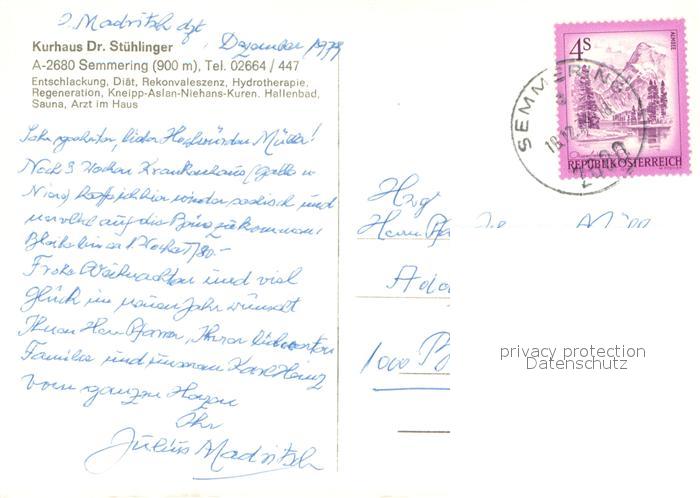 J. Madritsch dzt
Kurhaus Dr. Stühlinger, Dezember 1979
A-2680 Semmering (900 m), Tel. 02664 / 447
Entschlackung, Diät, Rekonvaleszenz, Hydrotherapie,
Regeneration, Kneipp-Aslan-Niehans-Kuren. Hallenbad,
Sauna, Arzt im Haus
Sehr geehrter, lieber Hochwürden Müller!
Nach 3 Wochen Krankenhaus (Galle u
Niere) hoffe ich hier wieder seelisch und
auf die Beine zu kommen!
Bleibe bis
Frohe Weihnachten und viel
Glück im neuen Jahr wünscht
Ihnen Herr Pfarrer, Ihrer liebwerten
Familie und unserem Karl Heinz
vom ganzen Herzen
Ihr
Julius Madritsch
4S
ALMSEE
REPUBLIK ÖSTERREICH
SEMMERING
2680
Herrn Pfa
1000
privacy protection
Datenschutz